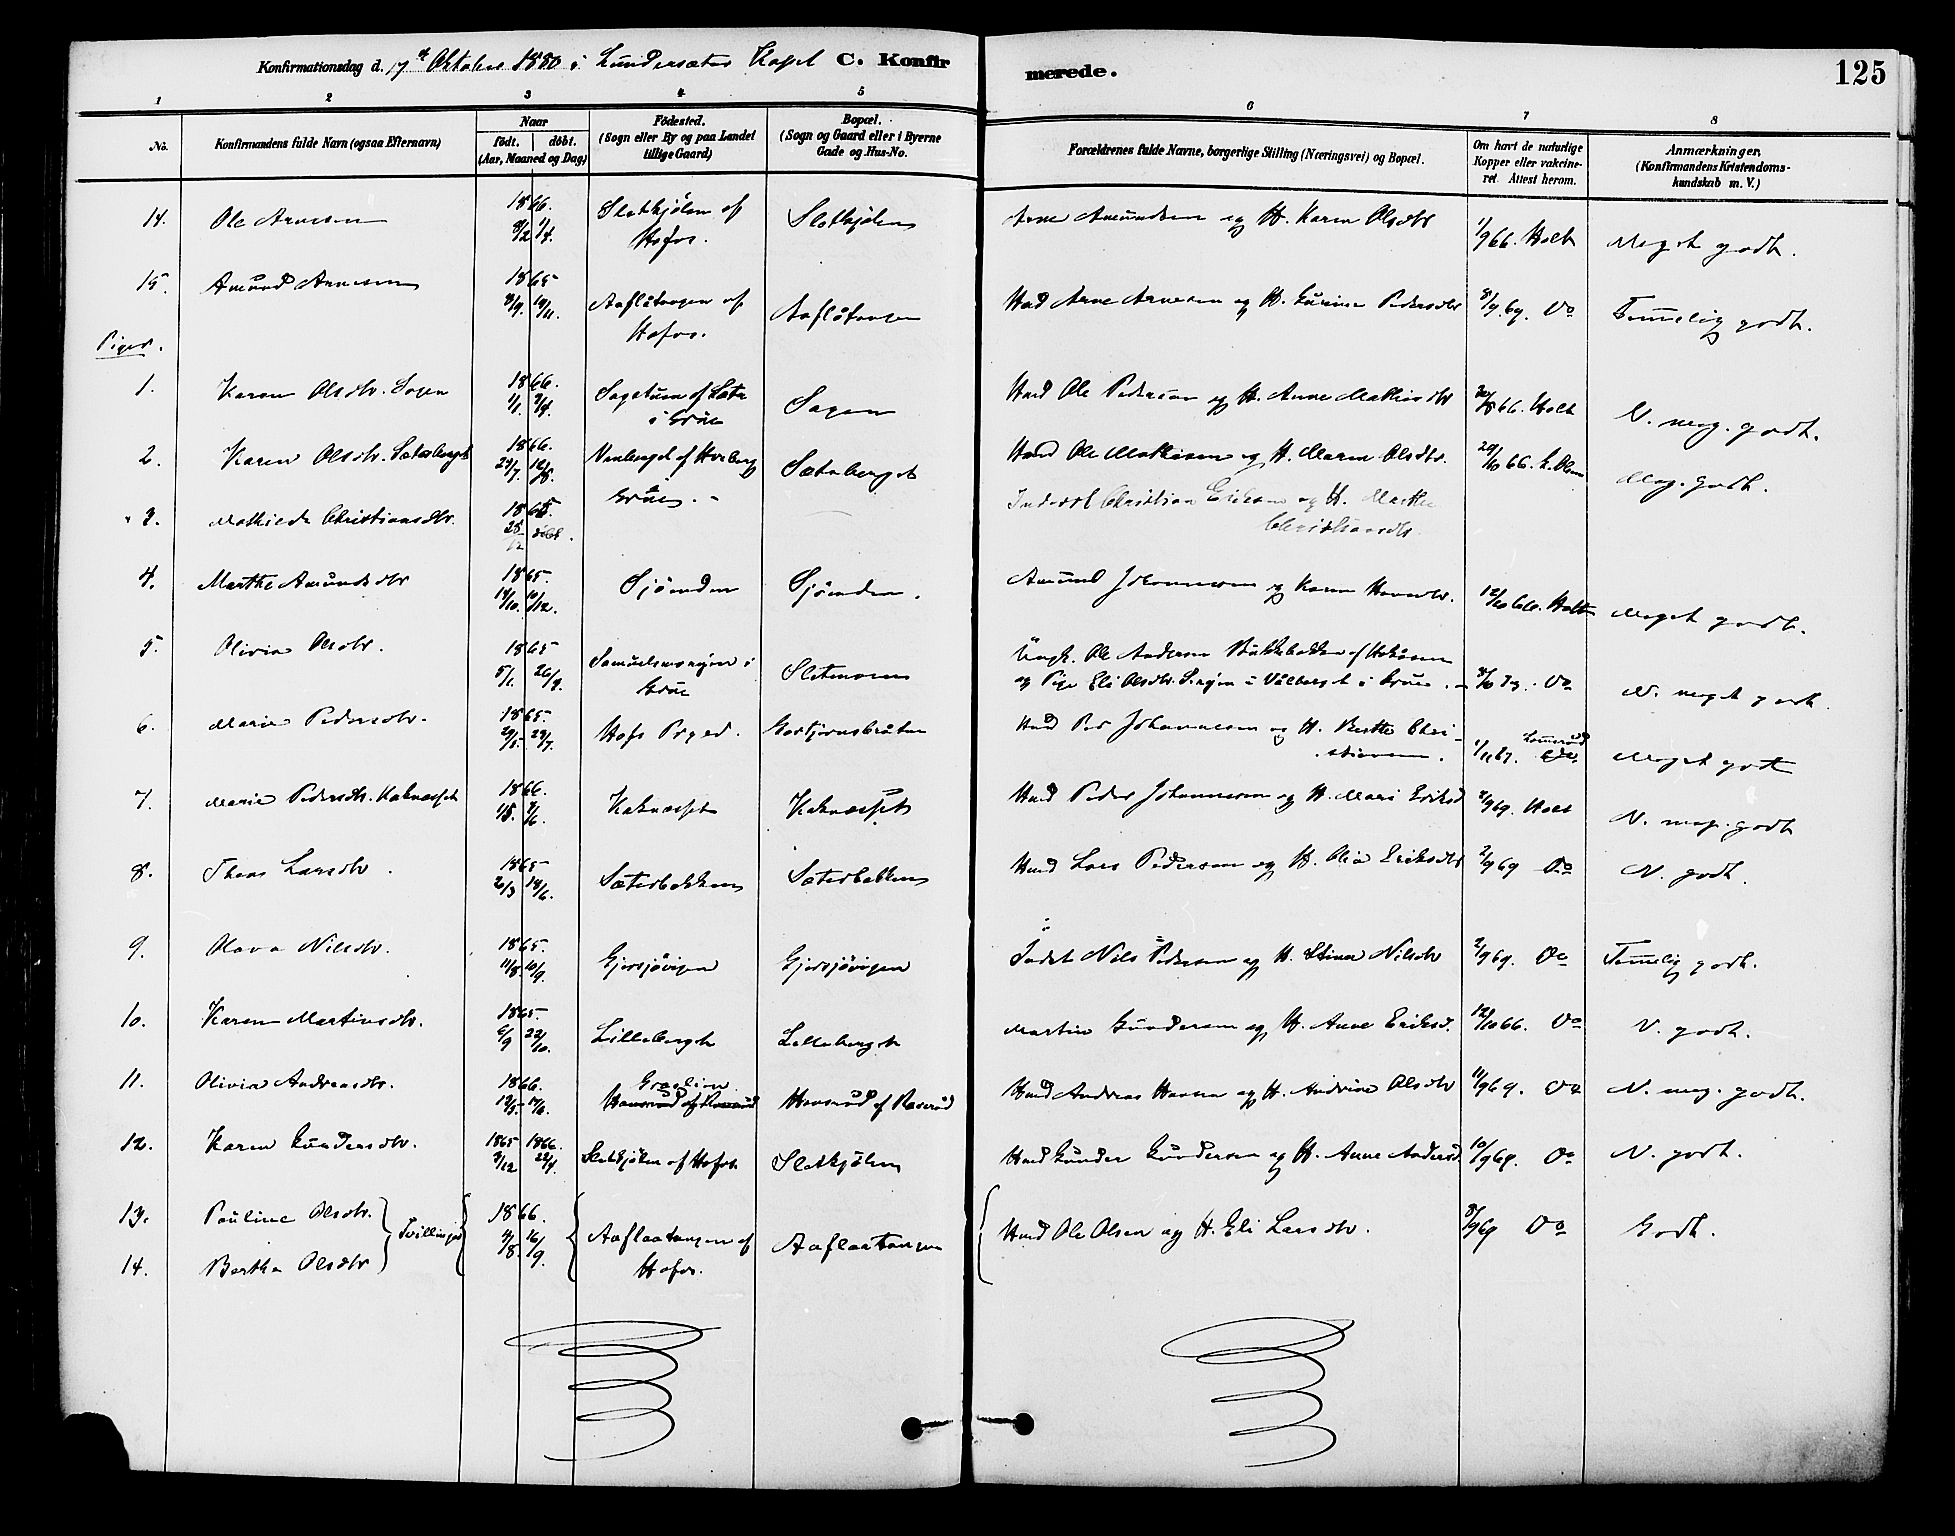 Konfirmationsdag d. 17de Oktober 1880 i Lundersæter Kapel C. Konfirmerede. 125
1 2 3 4 5 6 7 8
No. Konfirmandens fulde Navn (ogsaa Efternavn) Naar født. døbt. (Aar, Maaned og Dag) Fødested. (Sogn eller By og paa Landet tillige Gaard) Bopæl. (Sogn og Gaard eller i Byerne Gade og Hus-No. Forældrenes fulde Navne, borgerlige Stilling (Næringsvei) og Bopæl. Om havt de naturlige Kopper eller vakcineret. Attest herom. Anmærkninger, (Konfirmandens Kristendomskundskab m. V.)
14. Ole Arnesen 1866. 8/2 1/4. Sletkjølen af Hofos. Sletkjølen Arne Amundsen og H. Karen Olsdtr 1/9 66. Holt Meget godt.
15. Amund Arnesen 1865 19/11. Aaflåtangen af Hofos. Aaflåtangen Husmd Arne Arnesen og H. Gurine Pedersdtr 8/9.69. Do Temmelig godt.
Piger.
1. Karen Olsdtr. Sagen 1866. 1/1. 2/4. Sagstuen af Sæter i Grue Sagen Husmd Ole Pedersen og H. Anne Mathisdtr 66. Holt N. meg. godt.
2. Karen Olsdtr. Sæterberget 1866. 29/7. 12/8. af Hveberg Grue. Sæterberget Husmd Ole Mathisen og H. Maren Olsdtr. 29/10 66. Meg. godt.
3. Mathilde Christiansdtr. 1865 25/12 Inderst Christian Eriksen og H. Marthe Christiansdtr.
4. Marthe Amundsdtr 1865. 14/10. 10/12. Sjøenden Sjøenden. Amund Johannesen og Karen Hansdtr. 12/10 66. Holt Meget godt.
5. Olivia Olsdtr. 1865 5/1. 26/9. Samuelsvangen i Grue Sletmoen Ungk. Ole Andersen Bakkebakken af Hokåsen
og Pige Eli Olsdtr. Vålberget i Grue. 73. Do N. meget godt.
6. Marie Pedersdtr. 1865. 29/5. 23/7. Hofs Prgd. Gartjernsbråten Husmd Per Johannesen og H. Berthe Christiansen. 1/11 67. Meget godt
7. Marie Pedersdtr. Kaknæsset 1866. 1/5. 3/6. Kaknæsset Kaknæsset Husmd Peder Johannesen og H. Mari Eriksd 69. Holt N. meg. godt
8. Thea Larsdtr. 1865 2/3 14/6. Sæterbakken Sæterbakken Husmd Lars Pedersen og H. Olia Eriksdtr 2/9 69 Do N. godt.
9. Olava Nilsdtr. 1865. 11/8. 10/9. Gjersjøvigen Gjersjøvigen Indst Nils Pedersen og H. Stina Nilsdtr 2/9 69. Do Temmelig godt.
10. Karen Martinsdtr. 1865. 6/9 22/10. Lilleberget Lilleberget Martin Gundersen og H. Anne Eriksd. 12/10 66. Do N. godt.
11. Olivia Andreasdtr. 1866. 12/5. 17/6. Hansrud af Roverud Husmd Andreas Hansen og H. Andrine Olsdtr 11/9 69. Do N. meg. godt.
12. Karen Gundersdtr. 1865 3/12 1866. 22/4. Sletkjølen af Hofos Sletkjølen Husmd Gunder Gundersen og H. Anne Andersd. 10/9 69. Do N. godt.
13. Pauline Olsdtr. Tvillinger 1866. 4/8. 16/9. Aaflaatangen af Hofos. Aaflaatangen Husmd Ole Olsen og H. Eli Larsdtr. 8/9 69 Do Godt.
14. Berthe Olsdtr